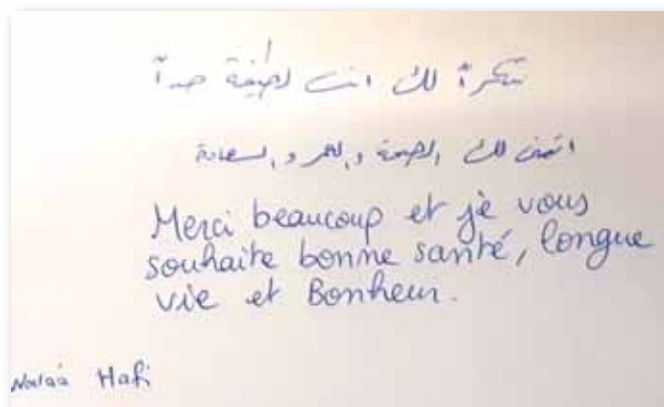 شكراً لك انت لطيفة جداً
اتمنى لك الصحة والعمر والسعادة
Merci beaucoup et je vous
souhaite bonne santé, longue
vie et Bonheur.
Hafi